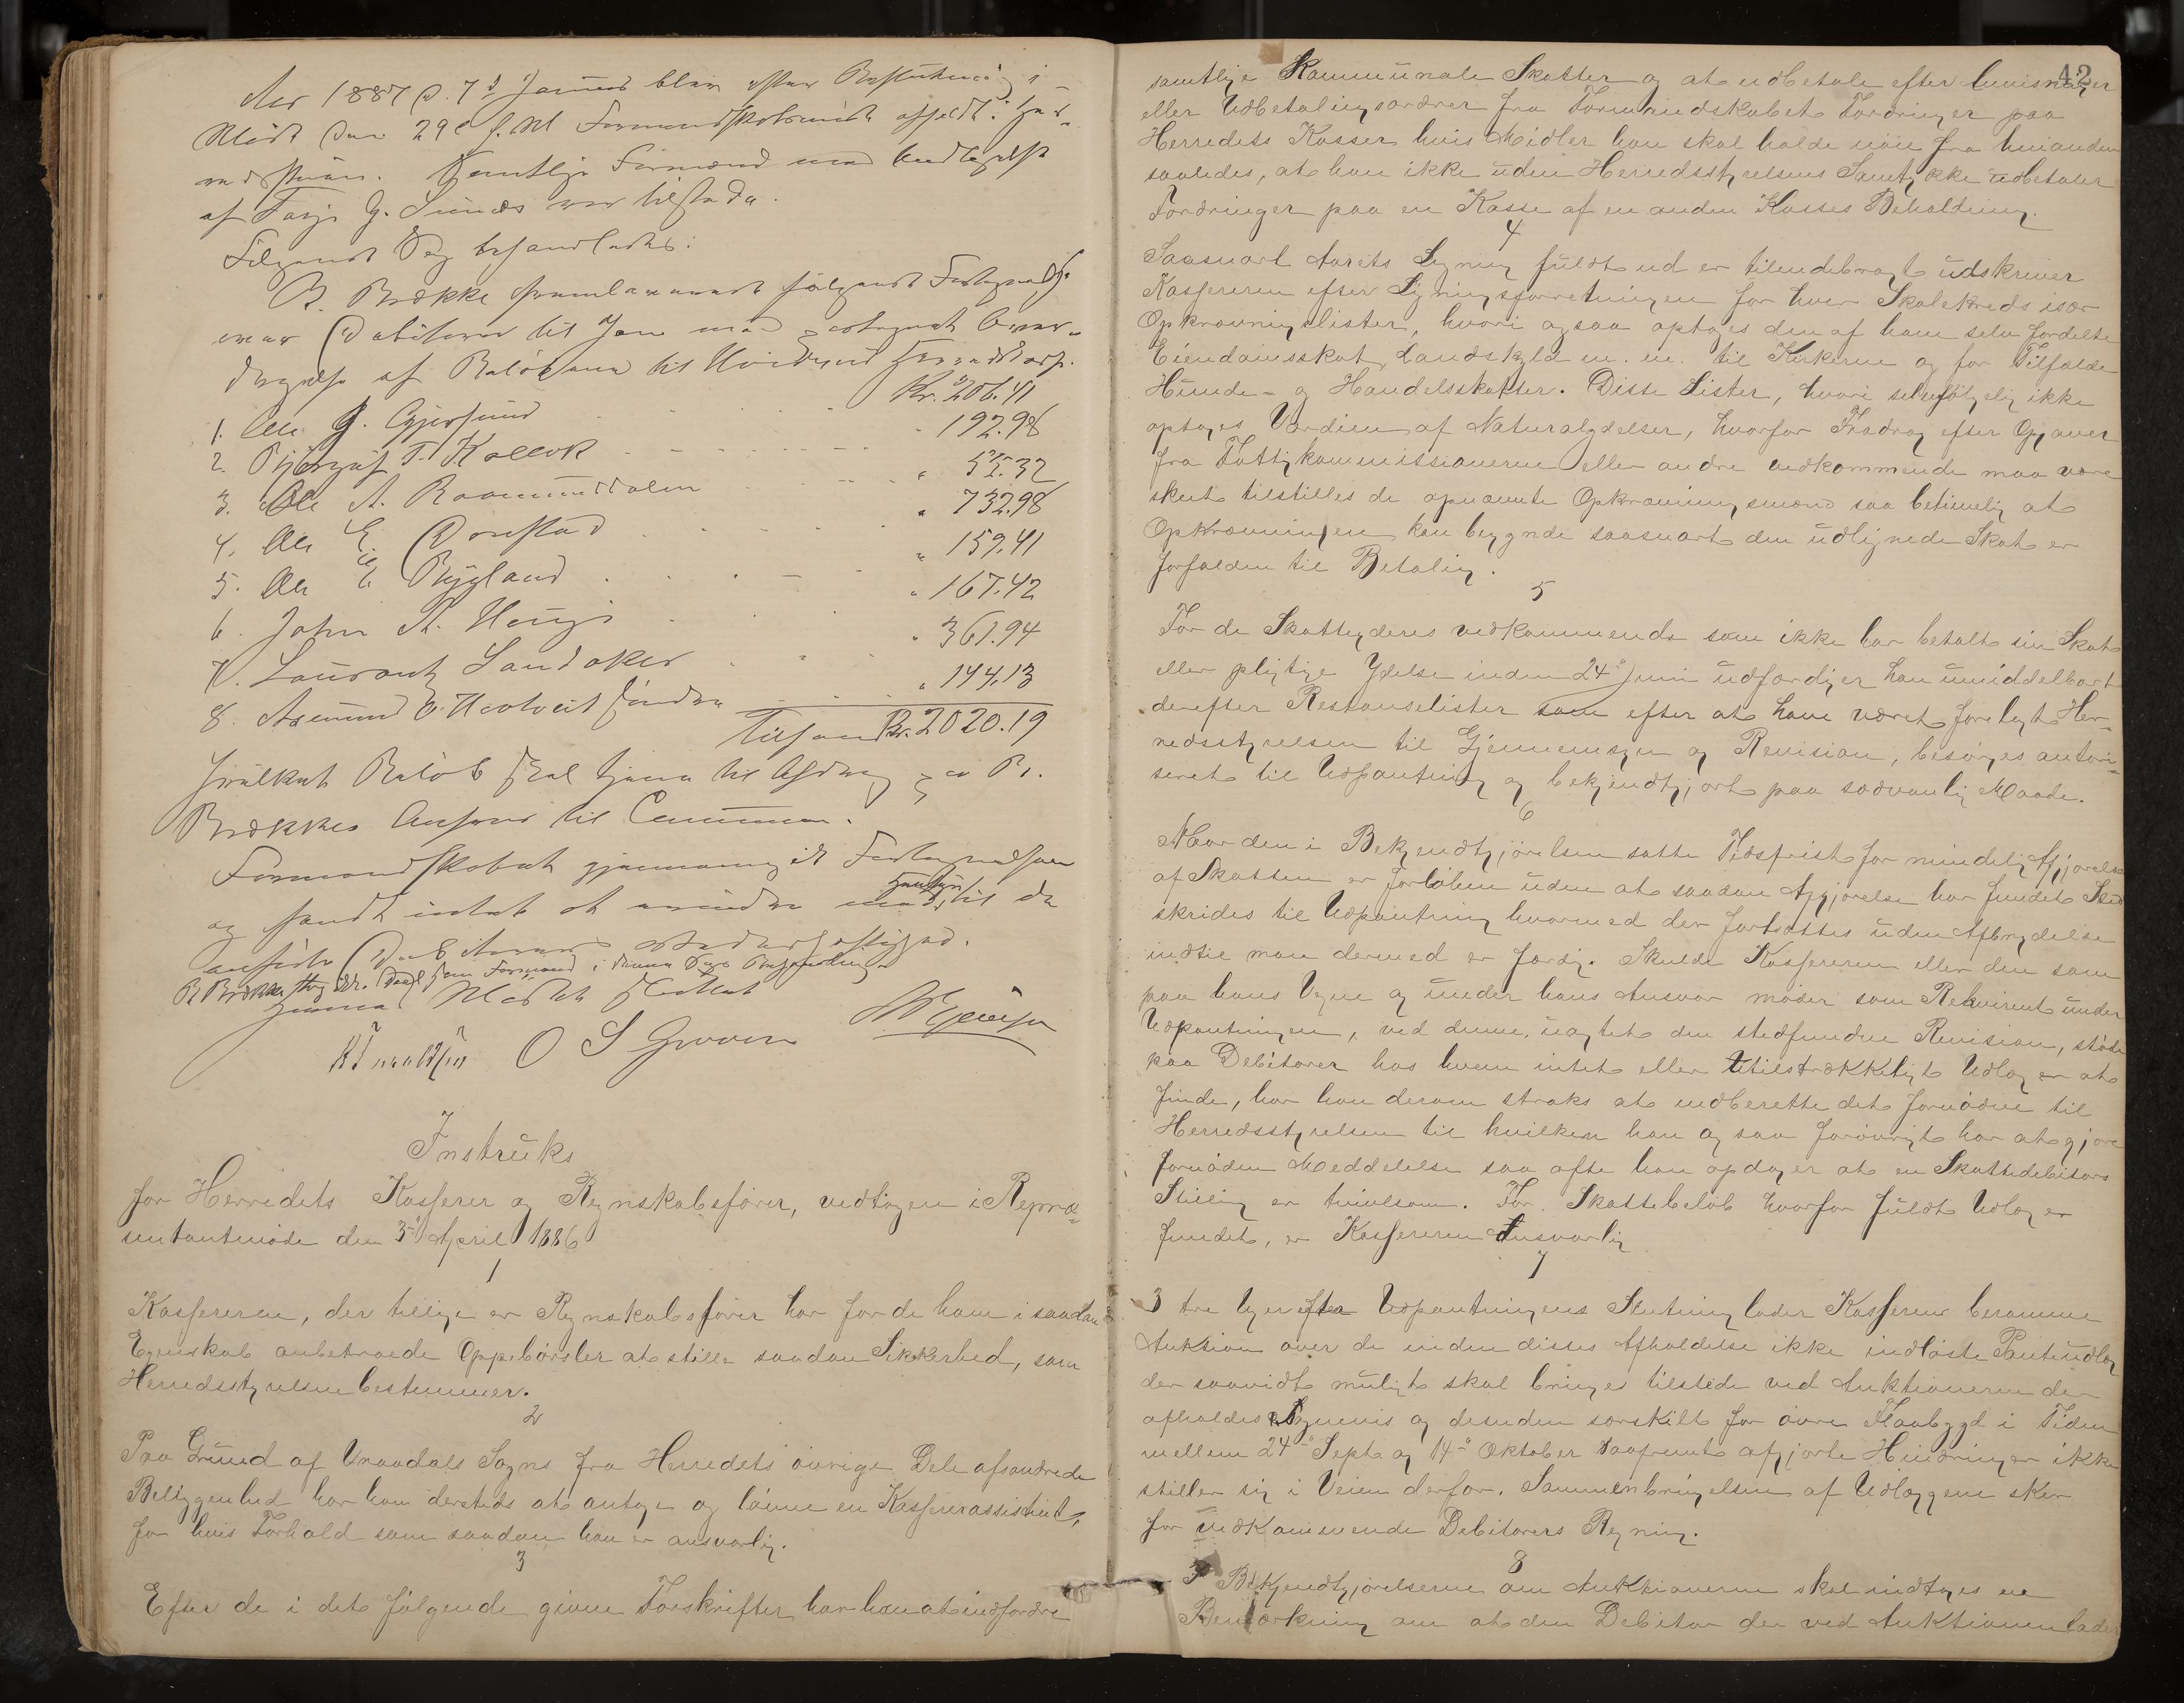 Aar 1887 d. 7d Januar blev efter Beslutning i
Møde den 29de f. M. Formandskabsmøde afholdt i
Samtlige Formænd med Undtagelse
af Tarje G. Sundes var tilstede.
Følgende Sag behandledes:
B. Brække fremlagde følgende Fortegnelse
over Debitorer til Jem med
af Beløbene til Herredskasse.
1. Ole G. Gjersund Kr. 206.41
2. T. Kaasa " 192.98
3. Ole A. Raamunddalen " 55.32
4. Ole E. " 732.98
5. Ole E. Rygland " 159.41
6. John A. Haugi " 167.42
7. Laurantz Landaker " 361.94
8. Aamund O. Hovtveit Sindre " 144.13
Tilsammen Kr. 2020.19
hvilket Beløb skal tjene til Afdrag paa B.
Brækkes Ansvar til Communen.
Formandskabet gjennemgik Fortegnelsen
og fandt intet at erindre med Hensyn til de
anførte Debitorers Vederheftighed.
B. Brække tog ikke Deel som Formand i denne Sags Behandling
Mødet sluttet
O S Groven
Instruks
for Herredets Kasserer og Regnskabsfører, vedtagen i Repræ-
sentantmøde den 3die April 1886
1
Kassereren, der tillige er Regnskabsfører har for de ham i saadan
Egenskab anbetroede Oppebørsler at stille saadan Sikkerhed, som
Herredsstyrelsen bestemmer.
2
Paa Grund af Vraadals Sogns fra Herredets øvrige Dele afsondrede
Beliggenhed har han dersteds at antage og lønne en Kassererassistent,
for hvis Forhold som saadan han er ansvarlig.
3
Efter de i det følgende givne Forskrifter har han at indfordre
42
samtlige Kommunale Skatter og at udbetale efter Anvisninger
eller Udbetalingsordrer fra Formandskabet Fordringer paa
Herredets Kasser hvis Midler han skal holde nøie fra hinanden
saaledes, at han ikke uden Herredsstyrelsens Samtykke udbetaler
Fordringer paa en Kasse af en anden Kasses Beholdning.
4
Saasnart Aarets Ligning fuldt ud er tilendebragt udskriver
Kassereren efter Ligningsforretningen for hver Skolekreds især
Opkrævningslister, hvori ogsaa optages den af ham selv fordelte
Eiendomsskat, Landskyld m. m. til Kirkerne og for Tilfælde
Hunde- og Handelsskatter. Disse Lister, hvori selvfølgelig ikke
optages Værdien af Naturalydelser, hvorfor Fradrag efter Opgaver
fra Fattigkommissionerne eller andre vedkommende maa være
skeet tilstilles de opnævnte Opkrævningsmænd saa betimelig at
Opkrævningen kan begynde saasnart den udlignede Skat er
forfalden til Betaling.
5
For de Skatteyderes vedkommende som ikke har betalt sin Skat
eller pligtige Ydelse inden 24de Juni udfærdiger han umiddelbart
derefter Restanselister som efter at have været forelagt Her-
redsstyrelsen til Gjennemsyn og Revision, besørges autori-
seret til Udpantning og bekjendtgjort paa sædvanlig Maade.
6
Naar den i Bekjendtgjørelsen satte Tidsfrist for mindelig Afgjørelse
af Skatten er forløben uden at saadan Afgjørelse har fundet Sted
skrides til Udpantning hvormed der fortsættes uden Afbrydelse
indtil man dermed er færdig. Skulde Kassereren eller den som
paa hans Vegne og under hans Ansvar møder som Rekvirent under
Udpantningen, ved denne, uagtet den stedfundne Revision, støde
paa Debitorer hos hvem intet eller utilstrækkeligt Udlæg er at
finde, har han derom straks at indberette det fornødne til
Herredsstyrelsen til hvilken han ogsaa forøvrigt har at gjøre
fornøden Meddelelse saa ofte han opdager at en Skattedebitors
Stilling er tvivlsom. For Skattebeløb hvorfor fuldt Udlæg er
fundet, er Kassereren Ansvarlig
7
3 tre Uger efter Udpantningens Slutning lader Kassereren beramme
Auktion over de inden disses Afholdelse ikke indløste Panteudlæg
der saavidt muligt skal bringes tilstede ved Auktionerne der
afholdes Sognevis og desuden særskilt for øvre Flaabygd i Tiden
mellem 24de Sept og 14de Oktober saafremt afgjorte Hindringer ikke
stiller sig i Veien derfor. Sammenbringelsen af Udlæggene sker
for vedkommende Debitorers Regning.
8
I Bekjendtgjørelserne om Auktionerne skal indtages en
Bemærkning om at den Debitor der ved Auktionen lader